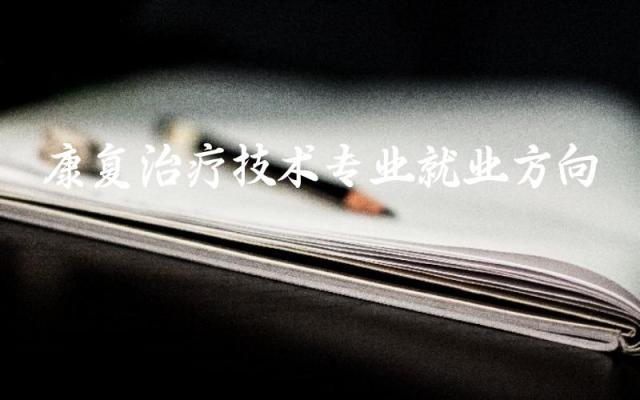 康复治疗技术专业就业方向